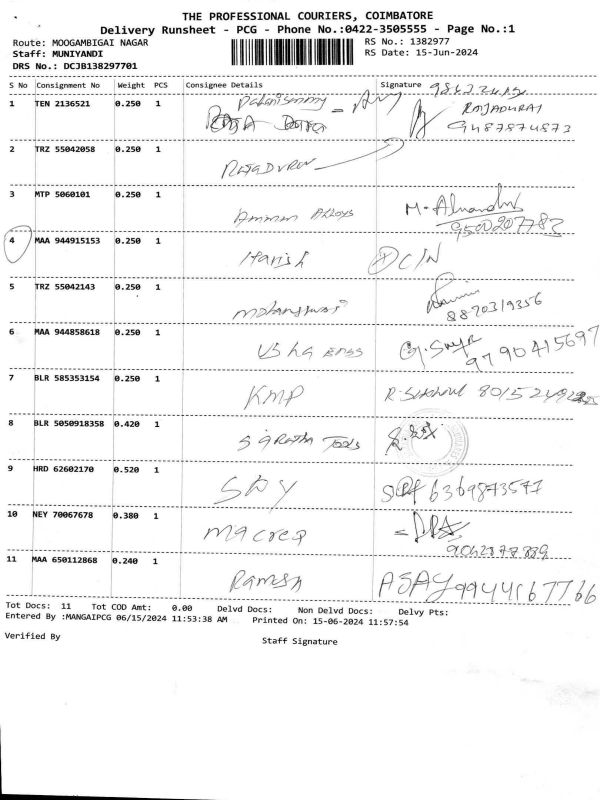 THE PROFESSIONAL COURIERS, COIMBATORE
Delivery Runsheet - PCG - Phone No.:0422-3505555 - Page No.:1
Route: MOOGAMBIGAI NAGAR
RS No.: 1382977
Staff: MUNIYANDI
RS Date: 15-Jun-2024
DRS No.: DCJB138297701
S No Consignment No Weight PCS Consignee Details Signature
1 TEN 2136521 0.250 1 RAJADURAI
9487874873
2 TRZ 55042058 0.250 1
3 MTP 5060101 0.250 1 Ammun Alloys
9500207782
4 MAA 944915153 0.250 1 Harish C/N
5 TRZ 55042143 0.250 1
8870319356
6 MAA 944858618 0.250 1 Usha
9790415697
7 BLR 585353154 0.250 1 KMP
8 BLR 5050918358 0.420 1 Tools
9 HRD 62602170 0.520 1 6369873577
10 NEY 70067678 0.380 1 Macreq
11 MAA 650112868 0.240 1 Ramesh 9944167766
Tot Docs: 11 Tot COD Amt: 0.00 Delvd Docs: Non Delvd Docs: Delvy Pts:
Entered By :MANGAIPCG 06/15/2024 11:53:38 AM Printed On: 15-06-2024 11:57:54
Verified By
Staff Signature